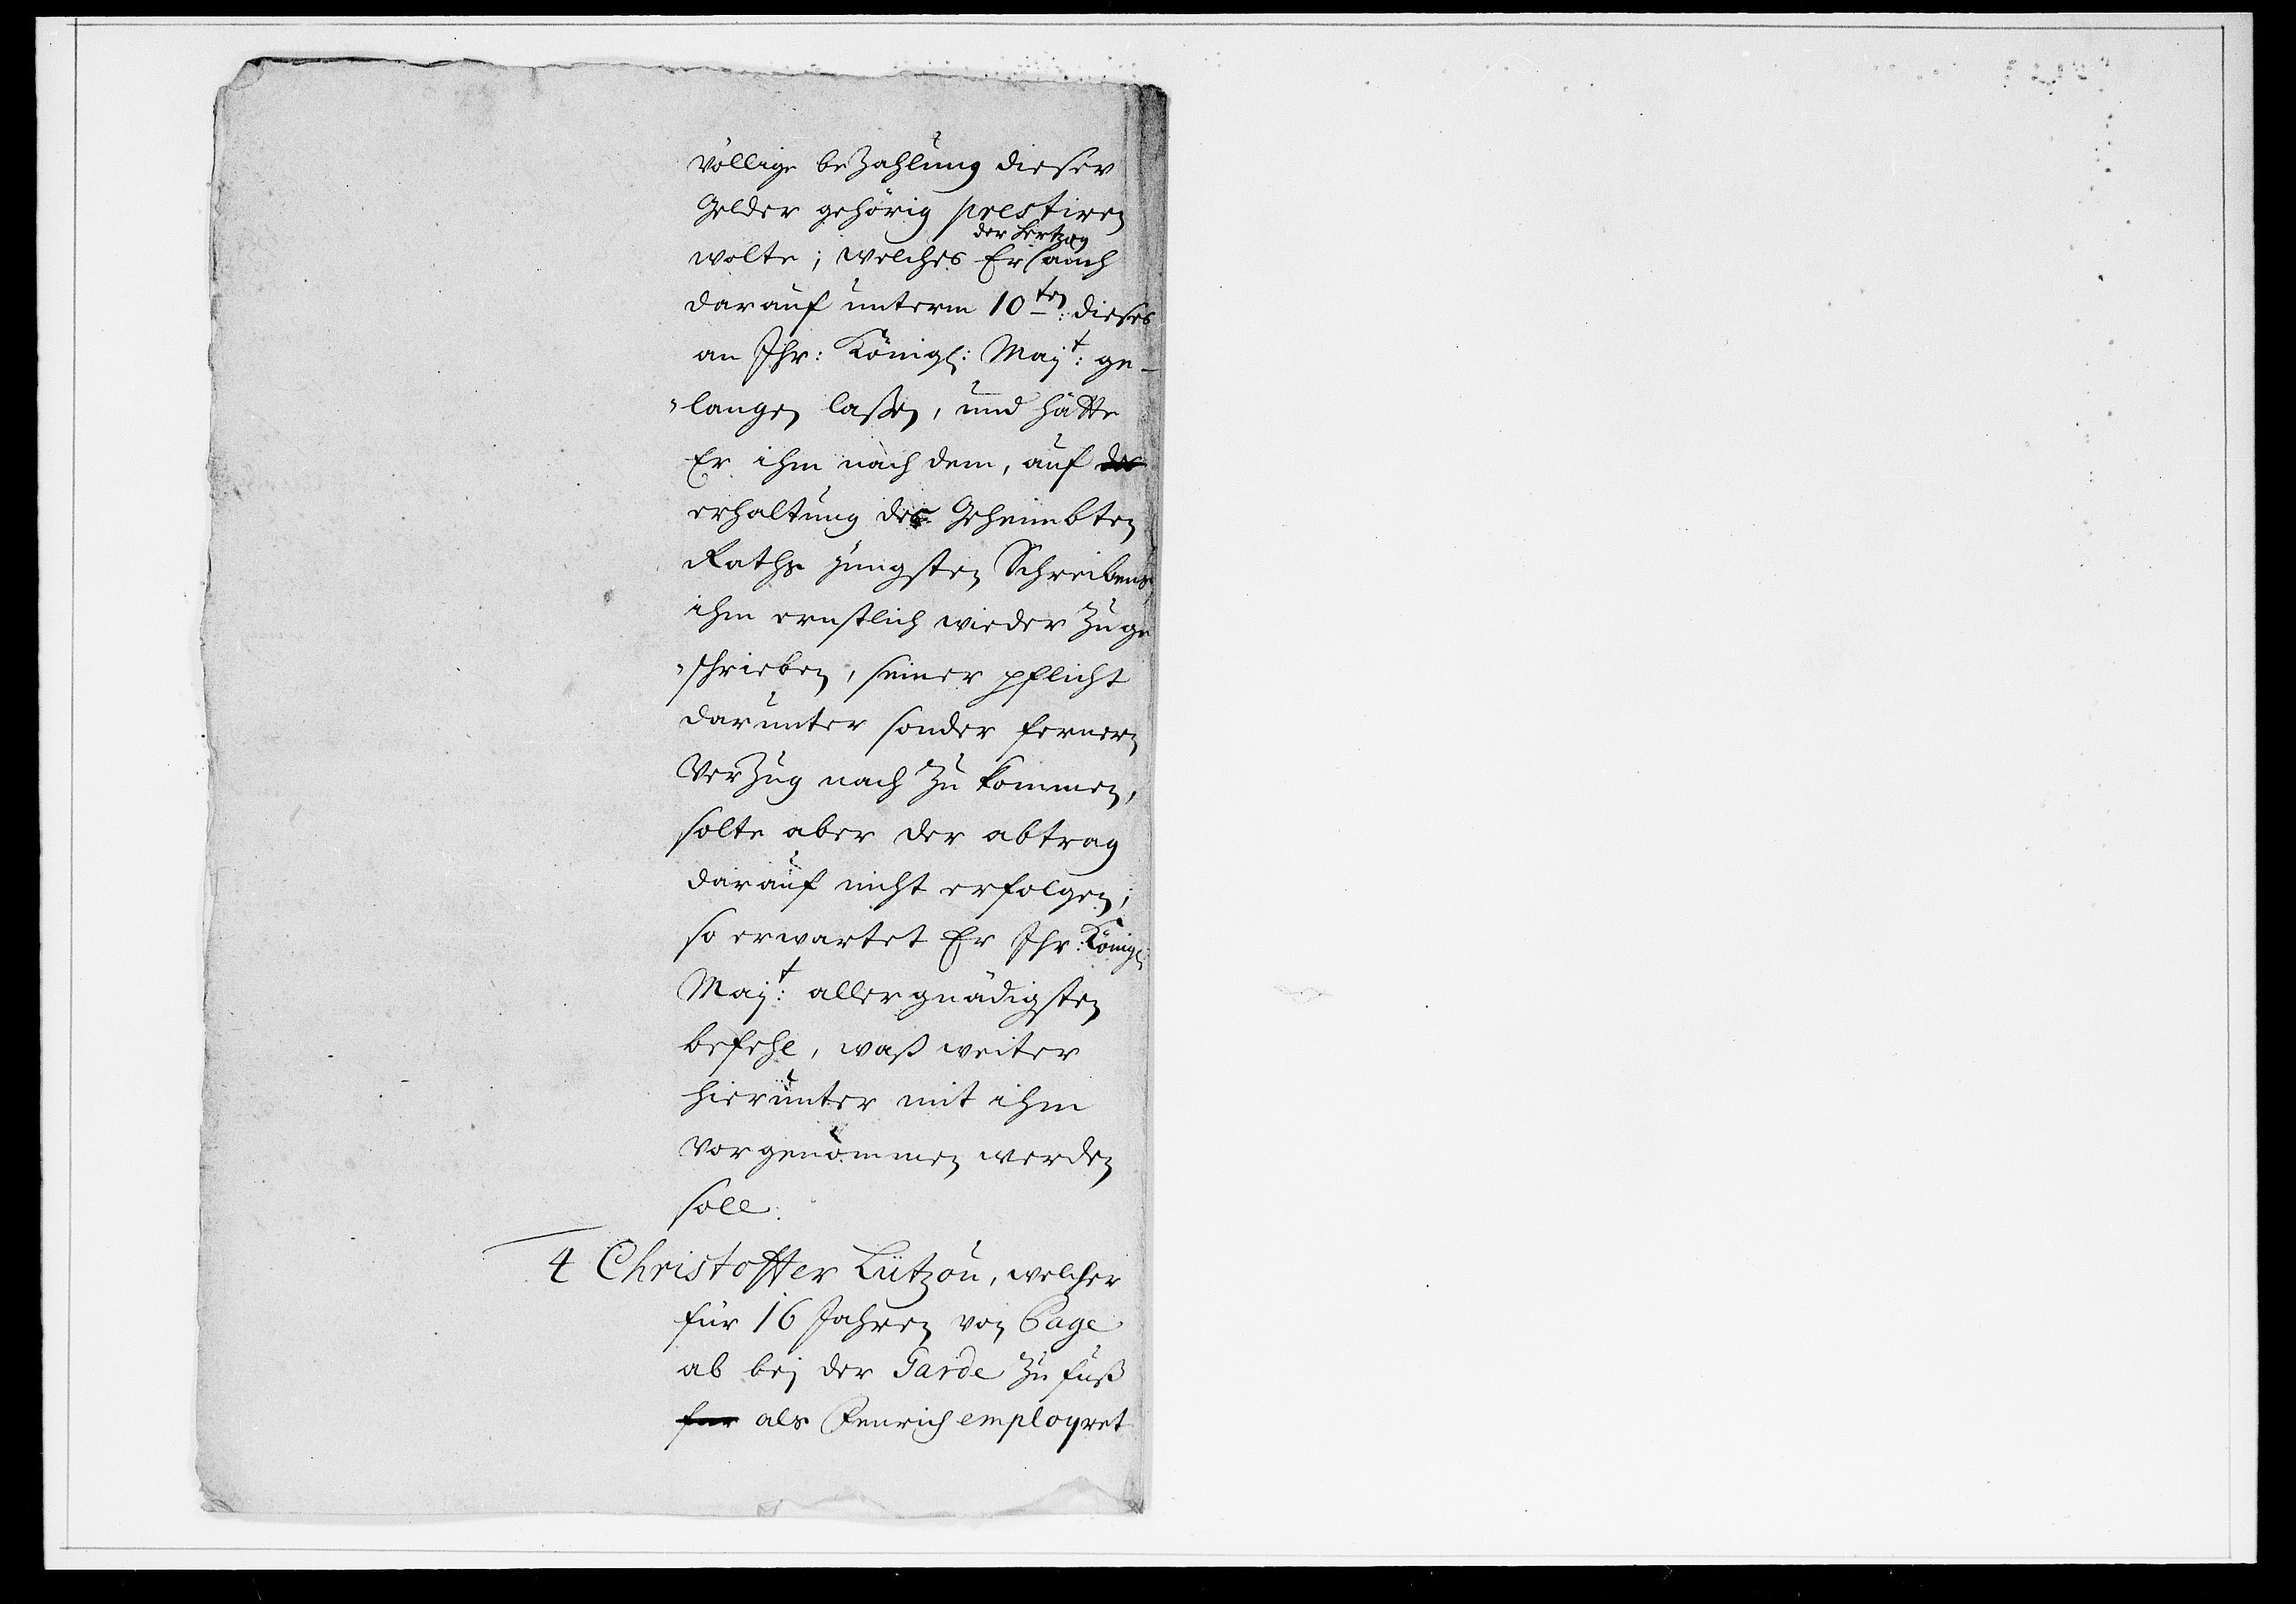 völlige bezahlung dieser
Gelder gehörig prestiren
der Hertzog
wolte; welches Er auch
darauf unterm 10ten: dieses
an Ihr: Königl: Mayt: ge-
"langen laßen, und hätte
Er ihm nach dem, auf des
erhaltung des Geheimbten
Raths jüngsten Schreibens,
ihm ernstlich wieder zu ge
"schrieben, seiner pflicht
darunter sonder fernern
Verzug nach zu kommen,
solte aber der abtrag
darauf nicht erfolgen;
so erwartet Er Ihr: Königl:
Mayt: allergnädigsten
befehl, waß weiter
hierunter mit ihm
vorgenommen werden
soll.
4 Christoffer Lützou, welcher
für 16 Jahren von Page
ab bej der Garde zu fuß
als Fenrich employret